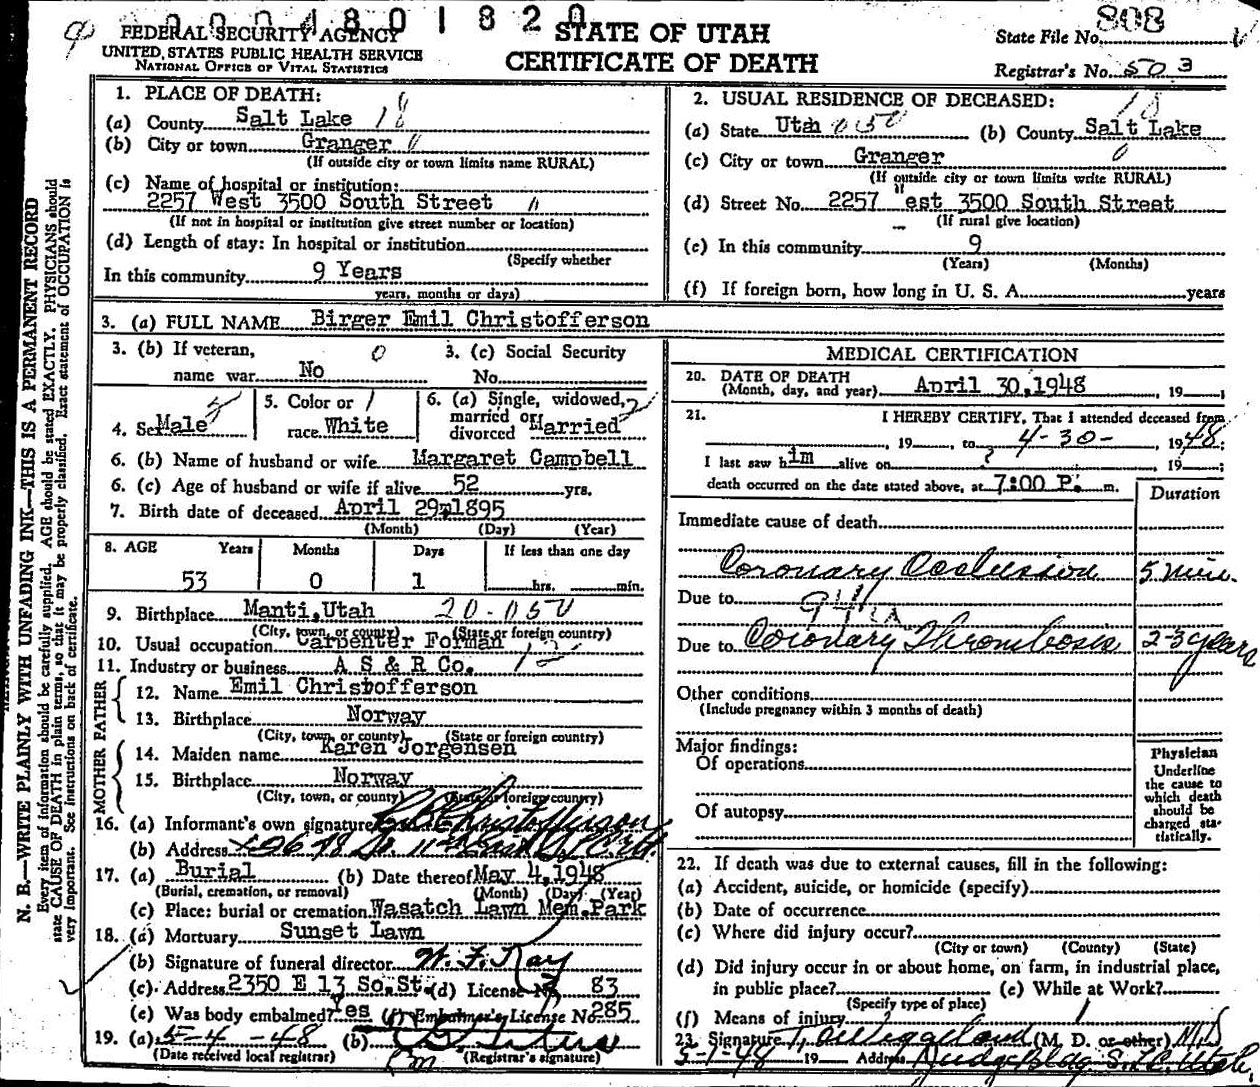 0004801820
FEDERAL SECURITY AGENCY
UNITED STATES PUBLIC HEALTH SERVICE
NATIONAL OFFICE OF VITAL STATISTICS
STATE OF UTAH
CERTIFICATE OF DEATH
State File No. 808
Registrar's No. 503
N. B.—WRITE PLAINLY WITH UNFADING INK—THIS IS A PERMANENT RECORD
Every item of information should be carefully supplied. AGE should be stated EXACTLY. PHYSICIANS should
state CAUSE OF DEATH in plain terms, so that it may be properly classified. Exact statement of OCCUPATION is
very important. See instructions on back of certificate.
1. PLACE OF DEATH:
(a) County Salt Lake 18
(b) City or town Granger
(If outside city or town limits name RURAL)
(c) Name of hospital or institution:
2257 West 3500 South Street
(If not in hospital or institution give street number or location)
(d) Length of stay: In hospital or institution
(Specify whether
In this community 9 Years
years, months or days)
2. USUAL RESIDENCE OF DECEASED:
(a) State Utah 050 (b) County Salt Lake 18
(c) City or town Granger 0
(If outside city or town limits write RURAL)
(d) Street No. 2257 West 3500 South Street
(If rural give location)
(e) In this community 9
(Years) (Months)
(f) If foreign born, how long in U. S. A. years
3. (a) FULL NAME Birger Emil Christofferson
3. (b) If veteran, 0 3. (c) Social Security
name war No No.
4. Sex Male
5. Color or 1
race White
6. (a) Single, widowed, 2
married or
divorced Married
6. (b) Name of husband or wife Margaret Campbell
6. (c) Age of husband or wife if alive 52 yrs.
7. Birth date of deceased April 29, 1895
(Month) (Day) (Year)
8. AGE Years Months Days If less than one day
53 0 1 hrs. min.
9. Birthplace Manti, Utah 20-050
(City, town, or county) (State or foreign country)
10. Usual occupation Carpenter Forman
11. Industry or business A S & R Co.
FATHER
12. Name Emil Christofferson
13. Birthplace Norway
(City, town, or county) (State or foreign country)
MOTHER
14. Maiden name Karen Jorgensen
15. Birthplace Norway
(City, town, or county) (State or foreign country)
16. (a) Informant's own signature Christofferson
(b) Address
17. (a) Burial (b) Date thereof May 4, 1948
(Burial, cremation, or removal) (Month) (Day) (Year)
(c) Place: burial or cremation Wasatch Lawn Mem. Park
18. (a) Mortuary Sunset Lawn
(b) Signature of funeral director W. F. Ray
(c) Address 2350 E 13 So. St. (d) License No. 83
(e) Was body embalmed? Yes (f) Embalmer's License No. 285
19. (a) 5-4-48 (b)
(Date received local registrar) (Registrar's signature)
MEDICAL CERTIFICATION
20. DATE OF DEATH
(Month, day, and year) April 30, 1948, 19
21. I HEREBY CERTIFY, That I attended deceased from
, 19 to 4-30-, 1948;
I last saw him alive on ?, 19 ;
death occurred on the date stated above, at 7:00 P. m.
Duration
Immediate cause of death
Coronary Occlusion 5 min.
Due to 94a
Due to Coronary Thrombosis 2-3 years
Other conditions
(Include pregnancy within 3 months of death)
Major findings:
Of operations
Of autopsy
Physician
Underline
the cause to
which death
should be
charged sta-
tistically.
22. If death was due to external causes, fill in the following:
(a) Accident, suicide, or homicide (specify)
(b) Date of occurrence
(c) Where did injury occur?
(City or town) (County) (State)
(d) Did injury occur in or about home, on farm, in industrial place,
in public place? (e) While at Work?
(Specify type of place)
(f) Means of injury
23. Signature (M. D. or other) MD
5-1-48 19 Address Judge Bldg S.L.C. Utah.